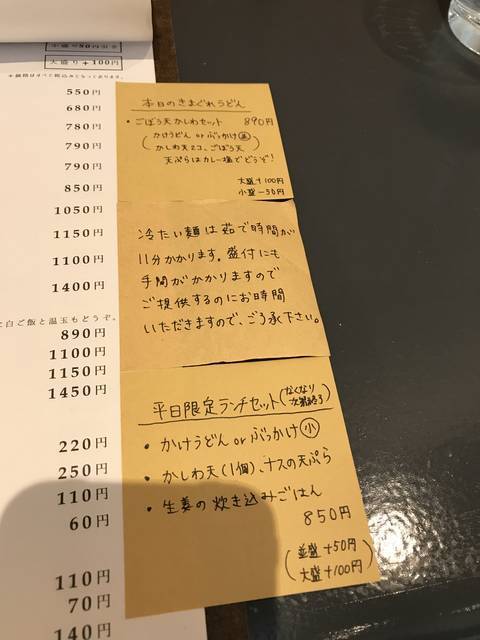 小盛り-50円引き
大盛り+100円
※価格はすべて税込みとなっております。
550円
680円
780円
790円
790円
850円
1050円
1150円
1100円
1400円
白ご飯と温玉もどうぞ。
890円
1100円
1150円
1450円
220円
250円
110円
60円
110円
70円
140円
本日のきまぐれうどん
・ごぼう天かしわセット 890円
(かけうどん or ぶっかけ
かしわ天2コ、ごぼう天)
天ぷらはカレー塩でどうぞ!
大盛+100円
小盛-50円
冷たい麺は茹で時間が
11分かかります。盛付にも
手間がかかりますので
ご提供するのにお時間
いただきますので、ご了承下さい。
平日限定ランチセット(なくなり次第終了)
・かけうどん or ぶっかけ 小
・かしわ天(1個)、ナスの天ぷら
・生姜の炊き込みごはん
850円
(並盛+50円
大盛+100円)